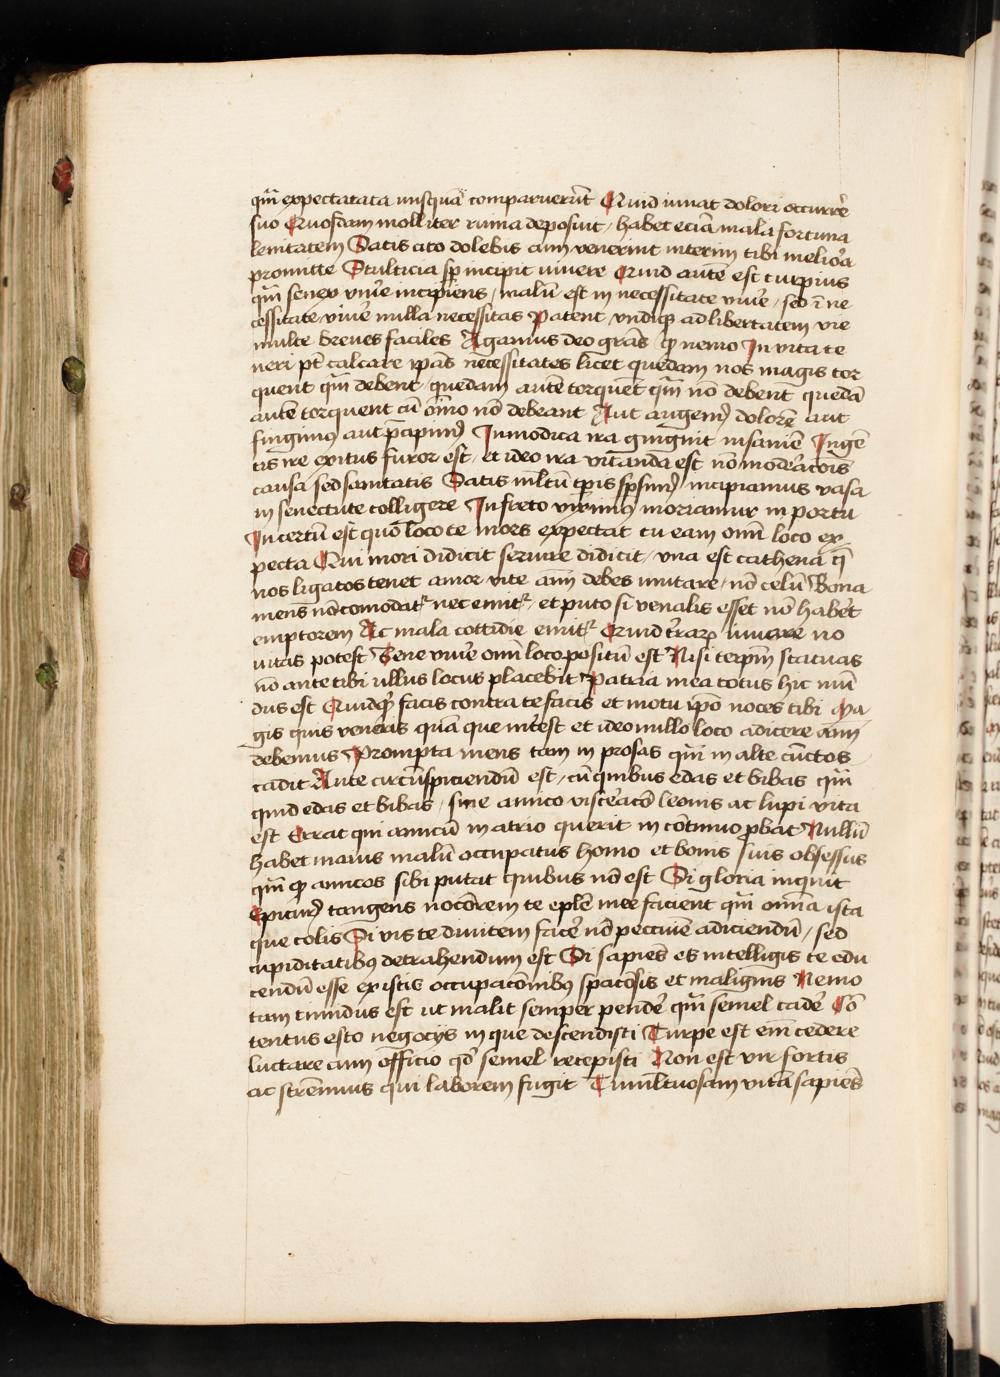 qm̄ expectatata nusquā comparuerūt Quid iuuat dolori occurrẽ
suo Quosdam molliter ruina deposuit / habet eciā mala fortuna
lenitatem Satis cito dolebis cum venerint interim tibi melioʳa
promitte Stulticia sp̄ incipit viuere Quid autē est turpius
qm̄ senex viũe incipiens / malū est in necessitate viũe / sed ī ne
cessitate viũe nulla necessitas Patent vndiqȝ ad libertatem vie
multe breues faciles Agamus deo grās qȝ nemo In vita te
neri pt̄ calcare ip̄as necessitates licet quedam nos magis tor
quent qm̄ debent / quedam autē torquēt qm̄ nō debent quedā
autē torquent cū om̄o nō debeant Aut augemꝰ dolorē aut
fingimꝰ aut p̄cipimꝰ Inmodica ira gingnit insaniē Ingē
tis ire exitus furor est / et ideo ira vitanda est nō modeʳacōis
causa sed sanitatis Satis ml̄tū tp̄is sp̄simꝰ / incipiamus vasa
in senectute colligere In freto viximꝰ moriamur in portu
Incertū est quō loco te mors expectat tu eam om̄i loco ex
pecta Qui mori didicit seruire didicit / vna est cathena q̄
nos ligatos tenet amor vite aīm debes mutare / nō celū Bona
mens nō comodatʳ nec emitʳ / et puto si venalis esset nō haberet
emptorem Ac mala cottidie emitʳ Quid t̄raꝝ iuuare no
uitas potest Bene viũe om̄i loco positū est Nisi terp̄m statuas
nō ante tibi vllus locus placebit Patria mea totus hic mū
dus est Quidqȝ facis contra te facis et motu ip̄o noces tibi Ma
gis quis veneris quā que int̄est et ideo nullo loco adicere aīm
debemus Prompta mens tam in prosas qm̄ in alte cūctos
cadit Ante circūspiciendū est / cū quibus edas et bibas qm̄
quid edas et bibas / sine amico visceʳacō leonis ac lupi vita
est Errat qui amicū in atrio querit in cōtinuo ꝓbat Nullū
habet maius malū occupatus homo et bonis suis obsessus
qm̄ qȝ amicos sibi putat quibus nō est Si gloria inquit
Epicurꝰ tangeris nocōrem te ep̄le mee facient qm̄ om̄ia ista
que colis Si vis te diuitem facere nō peccunie adiciendū / sed
cupiditatibꝰ detrahendum est Si sapieres intelligis te edu
cendū esse ex istis occupacōnibꝰ spaciosis et malignis Nemo
tam timidus est ut malit semper pendẽ qm̄ semel cadẽ Cō
tentus esto negocijs in que descendisti Turpe est em̄ cedere
luctare cum officio qd̄ semel recepisti Non est vir fortis
ac strennuus qui laborem fugit Tumultuosam vitā sapiēs